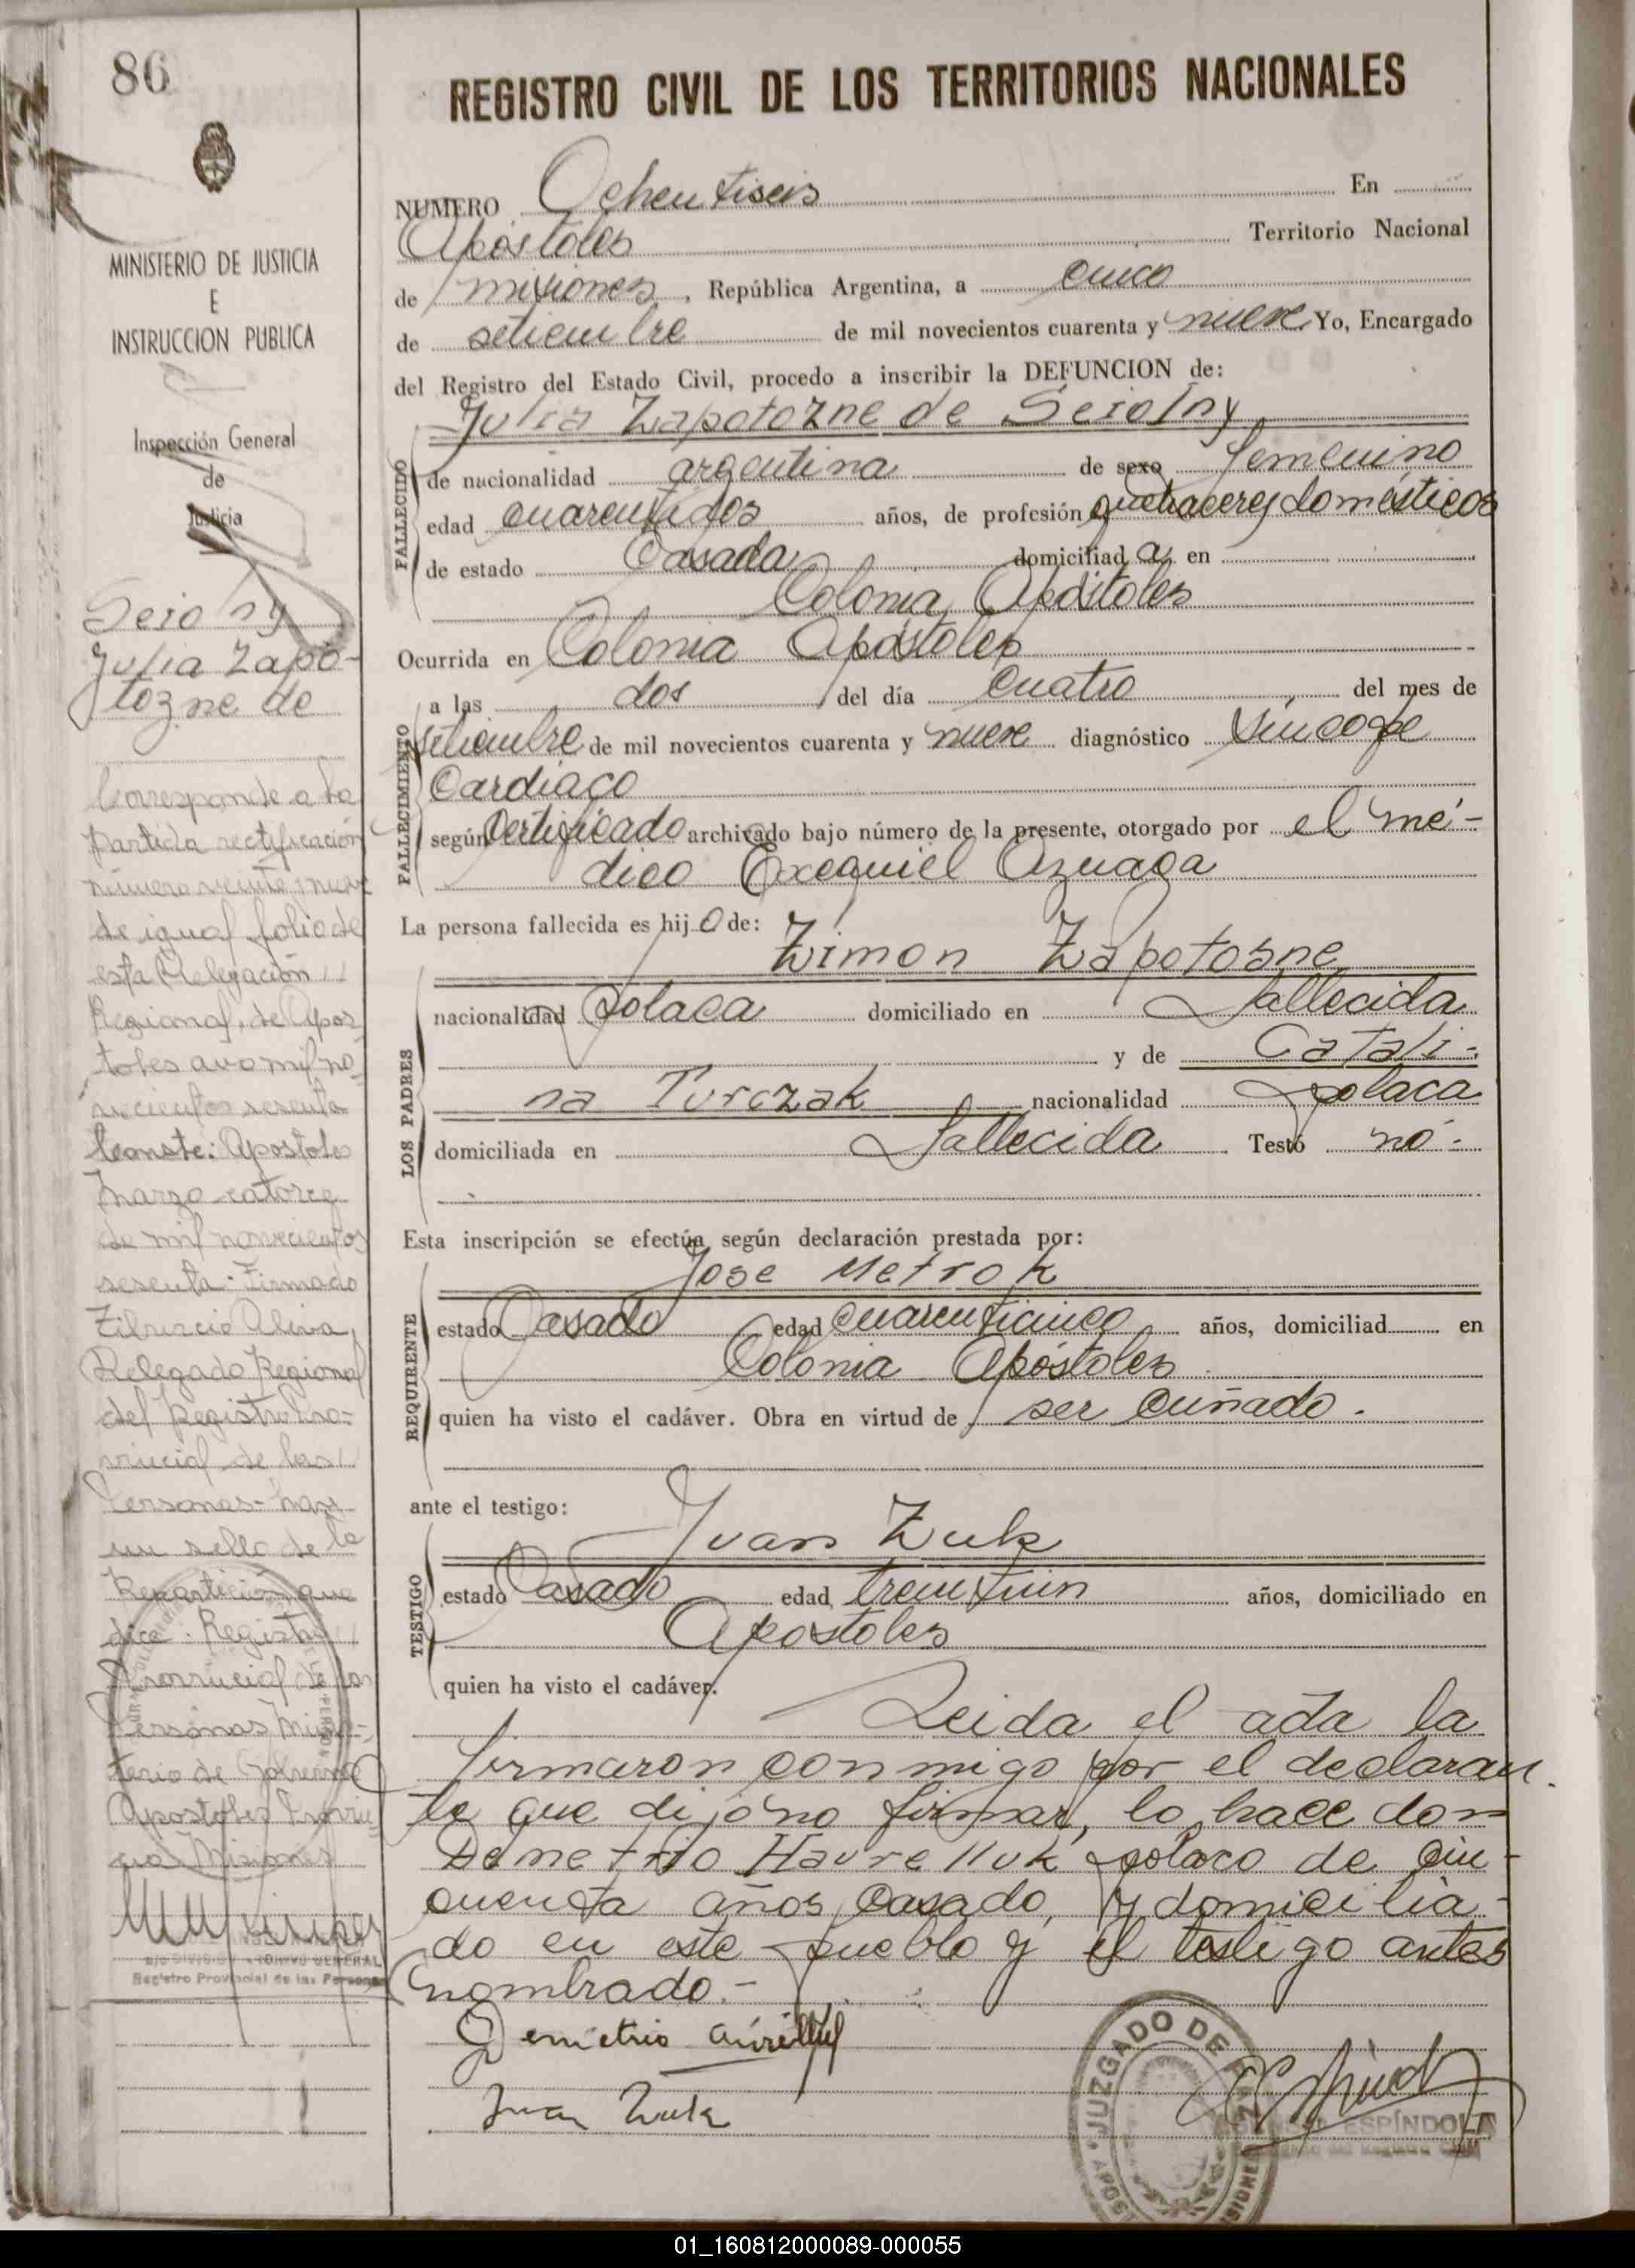 86
REGISTRO CIVIL DE LOS TERRITORIOS NACIONALES
MINISTERIO DE JUSTICIA
E
INSTRUCCION PUBLICA
Inspección General
de
Justicia
Seiolny
Julia Zapo-
tozne de
Corresponde a la
partida rectificación
número veinte nueve
de igual folio de
esta Delegación
Regional, de Apos
toles año mil no-
vecientos sesenta
Conste: Apostoles
Marzo catorce
de mil novecientos
sesenta - Firmado
Tiburcio Oliva
Delegado Regional
del Registro Pro-
vincial de las
Personas - hay
un sello de la
Repartición que
dice. Registro
Provincial de las
Personas Minis-
terio de Gobierno
Apostoles Provin
cia Misiones
ARCHIVO GENERAL
Registro Provincial de las Personas
NUMERO Ochentiseis En
Apóstoles Territorio Nacional
de misiones, República Argentina, a cinco
de setiembre de mil novecientos cuarenta y nueve Yo, Encargado
del Registro del Estado Civil, procedo a inscribir la DEFUNCION de:
Julia Zapotozne de Seiolny
FALLECIDO
de nacionalidad argentina de sexo femenino
edad cuarentidos años, de profesión quehaceres domésticos
de estado Casada domiciliad a en
Colonia Apóstoles
Ocurrida en Colonia Apóstoles
FALLECIMIENTO
a las dos del día cuatro del mes de
setiembre de mil novecientos cuarenta y nueve diagnóstico síncope
Cardiaco
según Certificado archivado bajo número de la presente, otorgado por el mé-
dico Exequiel Azuaga
La persona fallecida es hij o de:
LOS PADRES
Zimon Zapotosne
nacionalidad polaca domiciliado en fallecida
y de Catali-
na Turczak nacionalidad polaca
domiciliada en fallecida Testó nó-
Esta inscripción se efectúa según declaración prestada por:
REQUIRENTE
Jose Metrok
estado Casado edad cuarenticinco años, domiciliad en
Colonia Apóstoles
quien ha visto el cadáver. Obra en virtud de ser cuñado.
ante el testigo:
TESTIGO
Juan Zuk
estado Casado edad treintiun años, domiciliado en
Apostoles
quien ha visto el cadáver.
Leida el acta la
firmaron conmigo por el declaran-
te que dijo no firmar, lo hace don
Demetrio Havrelluk polaco de cin-
cuenta años, casado, y domicilia-
do en este pueblo y el testigo antes
nombrado.-
Demetrio
Juan Zuk
JUZGADO DE PAZ
ESPÍNDOLA
01_160812000089-000055